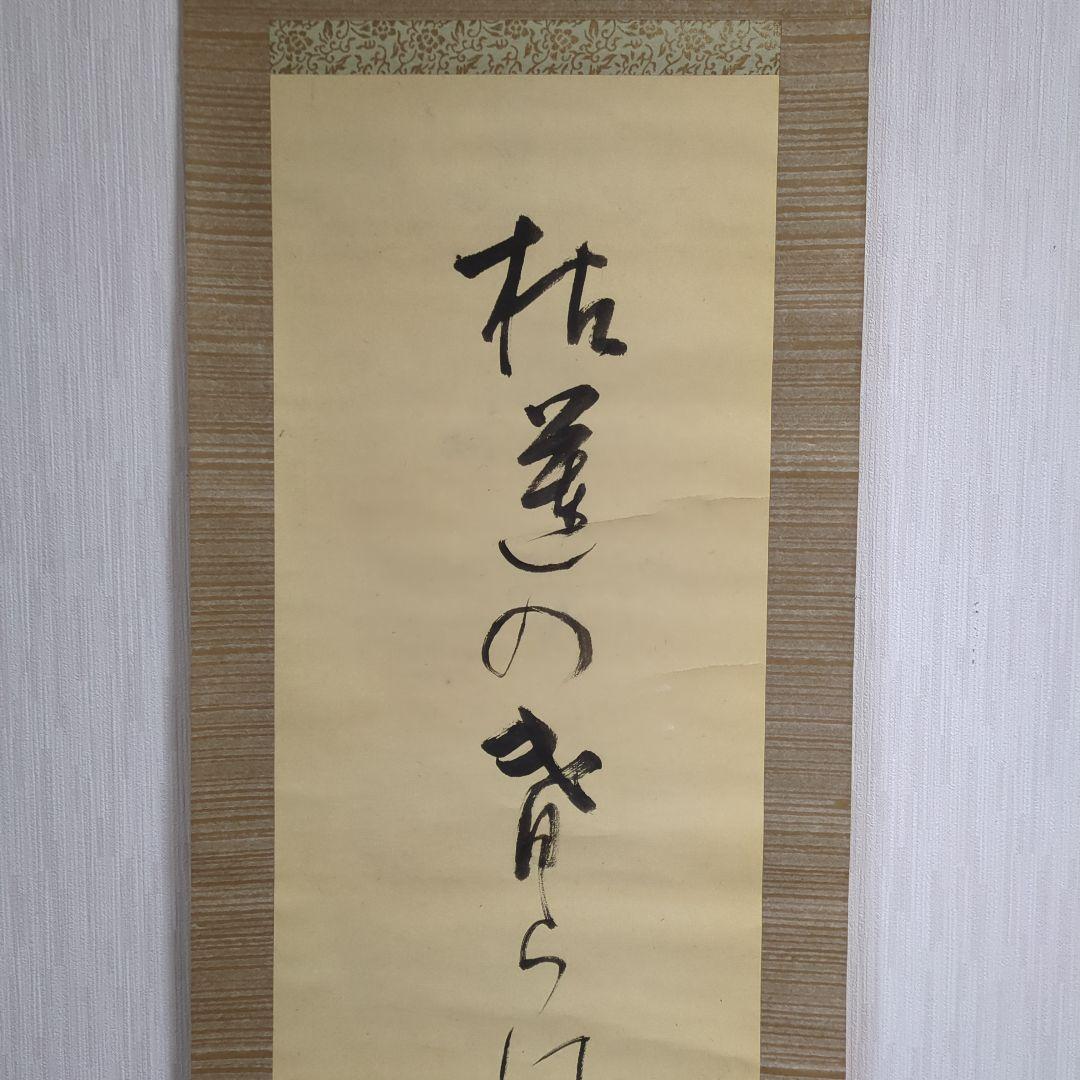 枯蓮の背らけ